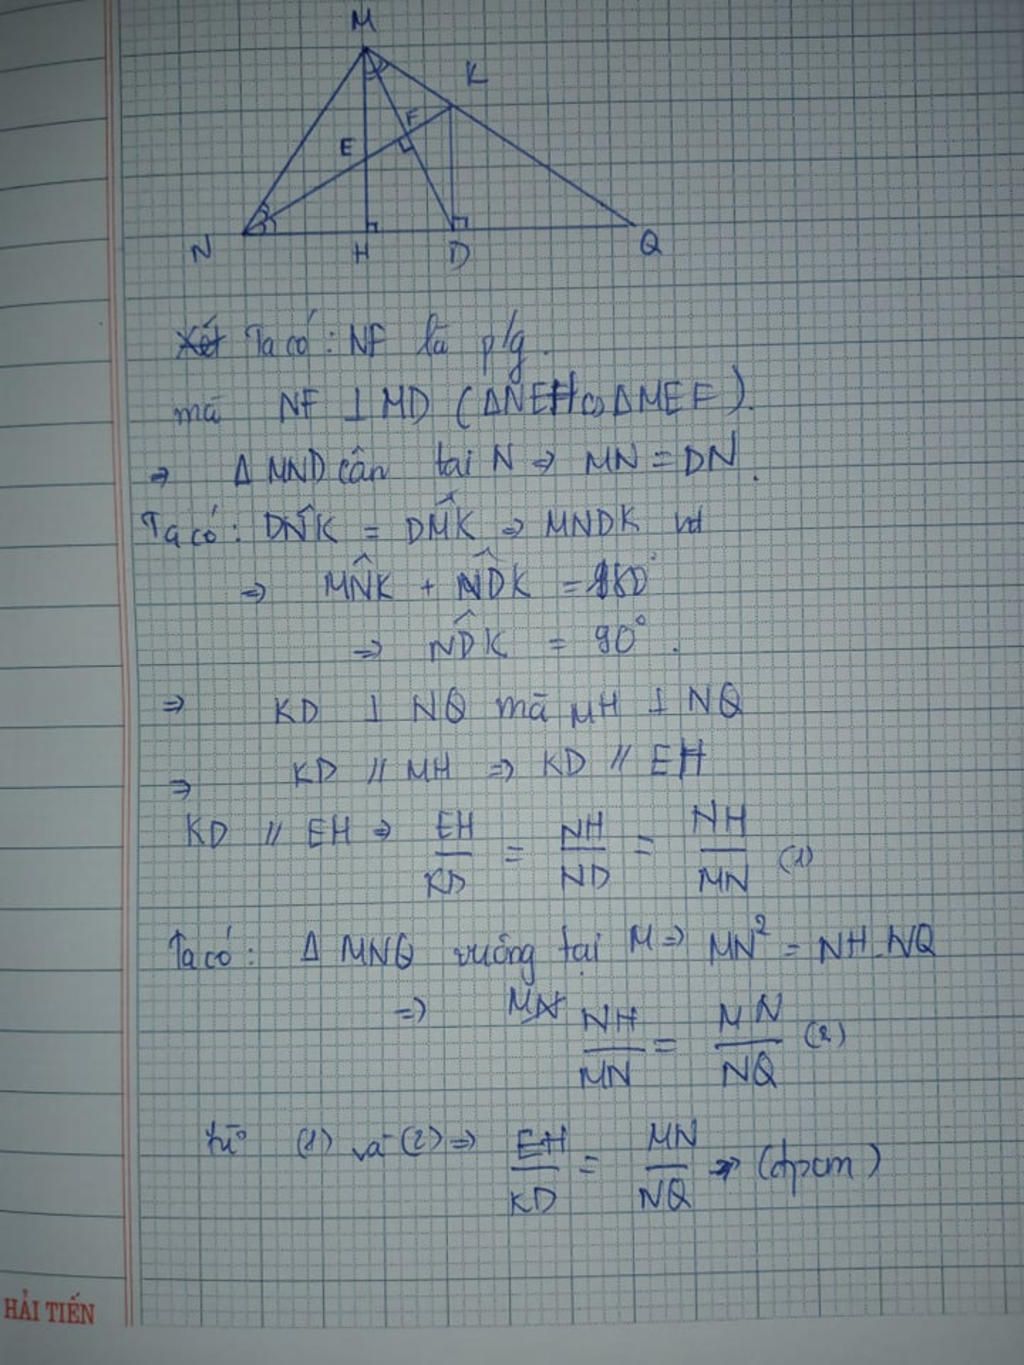 M
K
F
E
N
H
D
Q
Ta có: NF là p/g.
mà NF ⊥ MD (ΔNEH ∽ ΔMEF).
⇒ Δ MND cân tại N ⇒ MN = DN.
Ta có: DN̂K = DM̂K ⇒ MNDK nt
⇒ MN̂K + ND̂K = 180°
⇒ ND̂K = 90°.
⇒ KD ⊥ NQ mà MH ⊥ NQ
⇒ KD // MH ⇒ KD // EH
KD // EH ⇒ EH/KD = NH/ND = NH/MN (1)
Ta có: Δ MNQ vuông tại M ⇒ MN² = NH.NQ
⇒ NH/MN = MN/NQ (2)
từ (1) và (2) ⇒ EH/KD = MN/NQ ⇒ (đpcm)
HẢI TIẾN